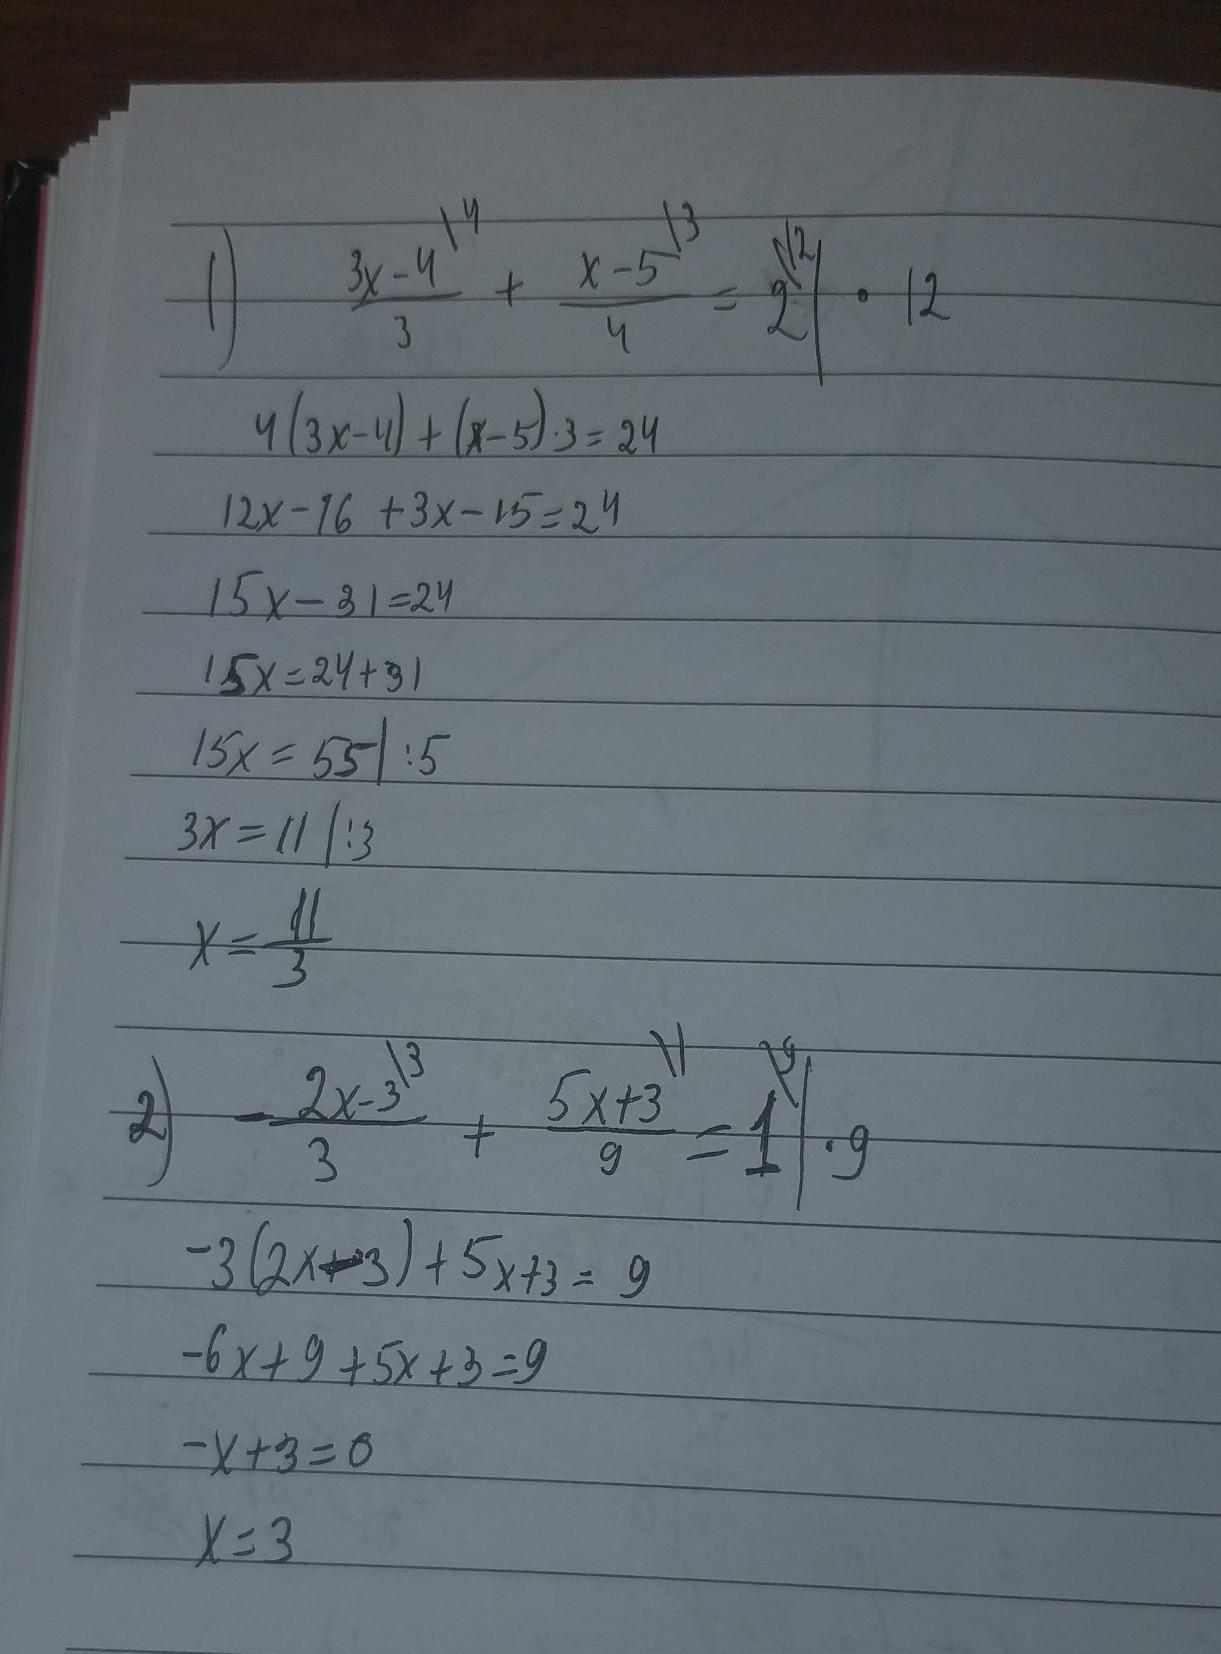 1) (3x-4)/3 \4 + (x-5)/4 \3 = 2 \12 | · 12
4(3x-4)+(x-5)·3=24
12x-16+3x-15=24
15x-31=24
15x=24+31
15x=55|:5
3x=11|:3
x=11/3
2) -(2x-3)/3 \3 + (5x+3)/9 \1 = 1 \9 | · 9
-3(2x-3)+5x+3=9
-6x+9+5x+3=9
-x+3=0
x=3